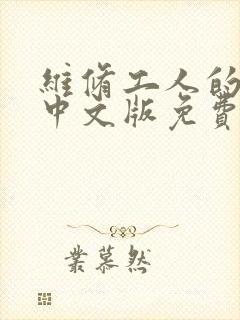 維脩工人的
中文版免費
葉慕然